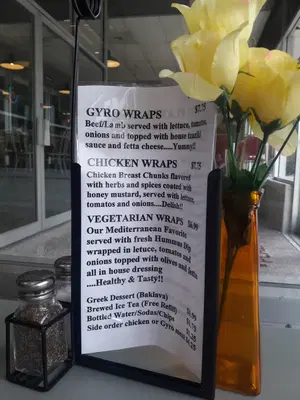 GYRO WRAPS $7.75
Beef/Lamb served with lettuce, tomatoes,
onions and topped with house tzatziki
sauce and fetta cheese....Yummy!!
CHICKEN WRAPS $7.75
Chicken Breast Chunks flavored
with herbs and spices coated with
honey mustard, served with lettuce,
tomatos and onions....Delish!!
VEGETARIAN WRAPS $6.99
Our Mediterranean Favorite
served with fresh Hummus Dip
wrapped in lettuce, tomatos and
onions topped with olives and fetta
all in house dressing
....Healthy & Tasty!!
Greek Dessert (Baklava)
Brewed Ice Tea (Free Refill) $1.99
Bottled Water/Sodas/Chips
Side order chicken or Gyro meat